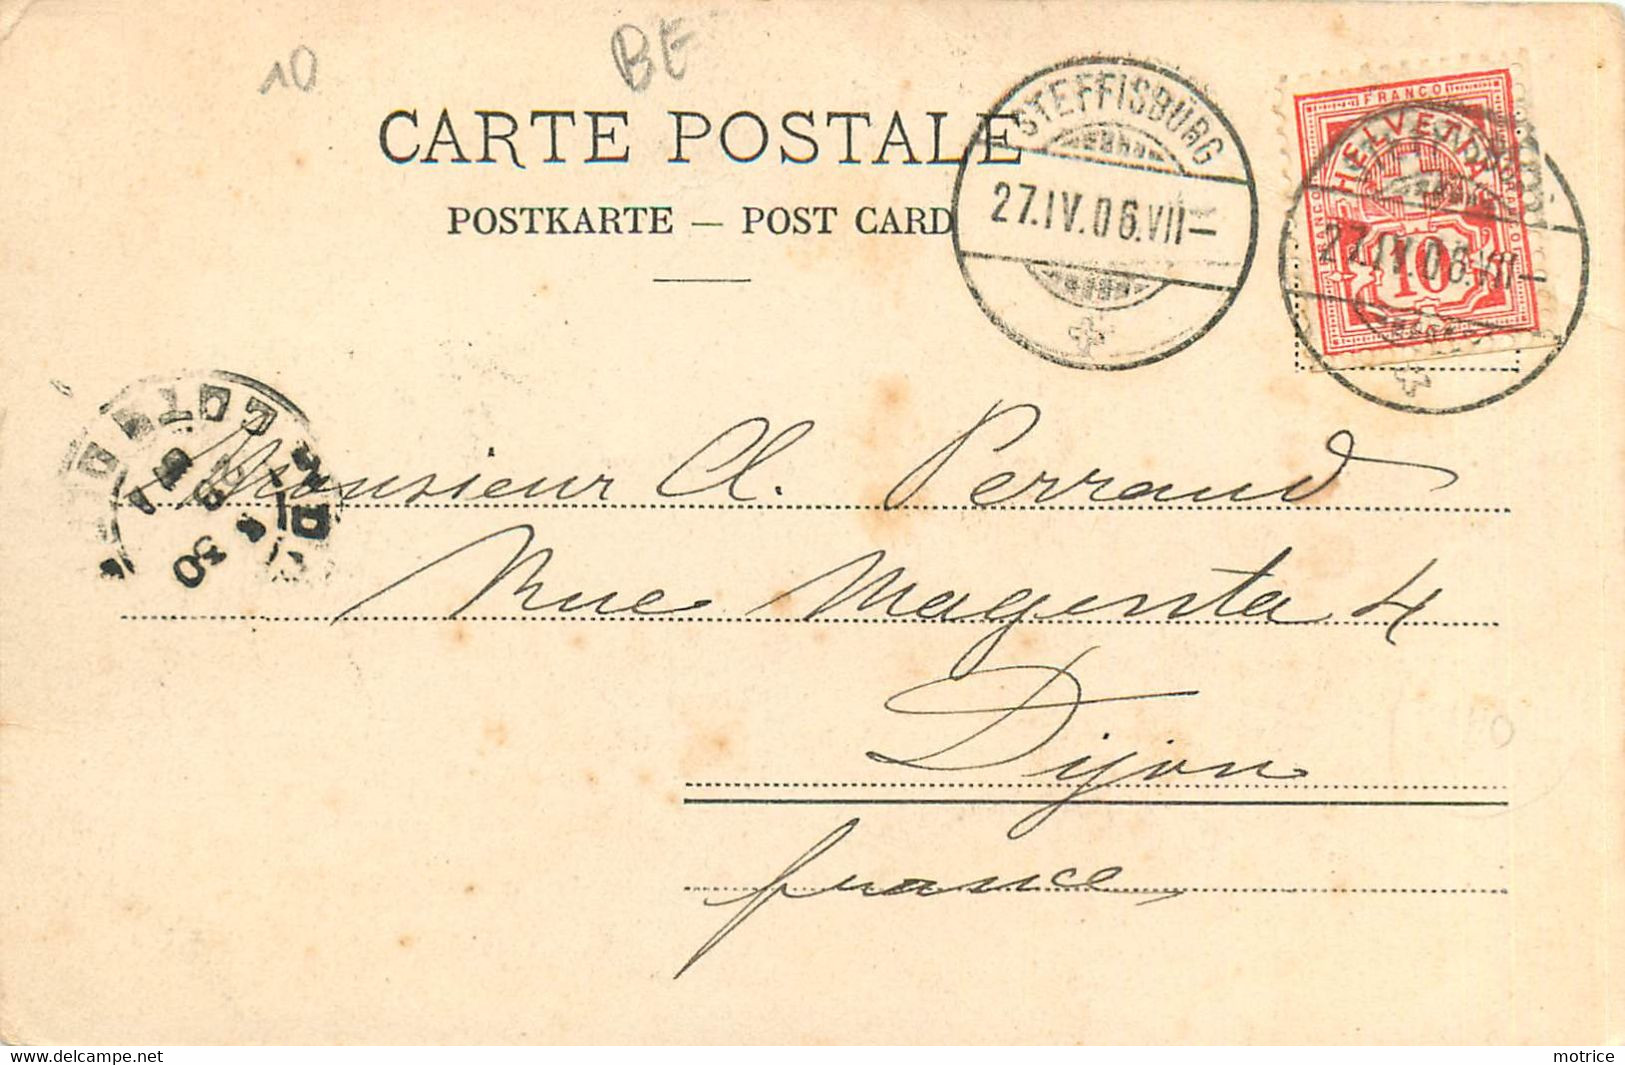 10
BE
CARTE POSTALE
POSTKARTE — POST CARD
STEFFISBURG
27.IV.06.VII—
FRANCO
HELVETIA
FRANCO
FRANCO
10
27.IV.06.VII—
Monsieur Cl. Perraud
Rue Magenta 4
Dijon
france
30
4
https://www.delcampe.net
motrice